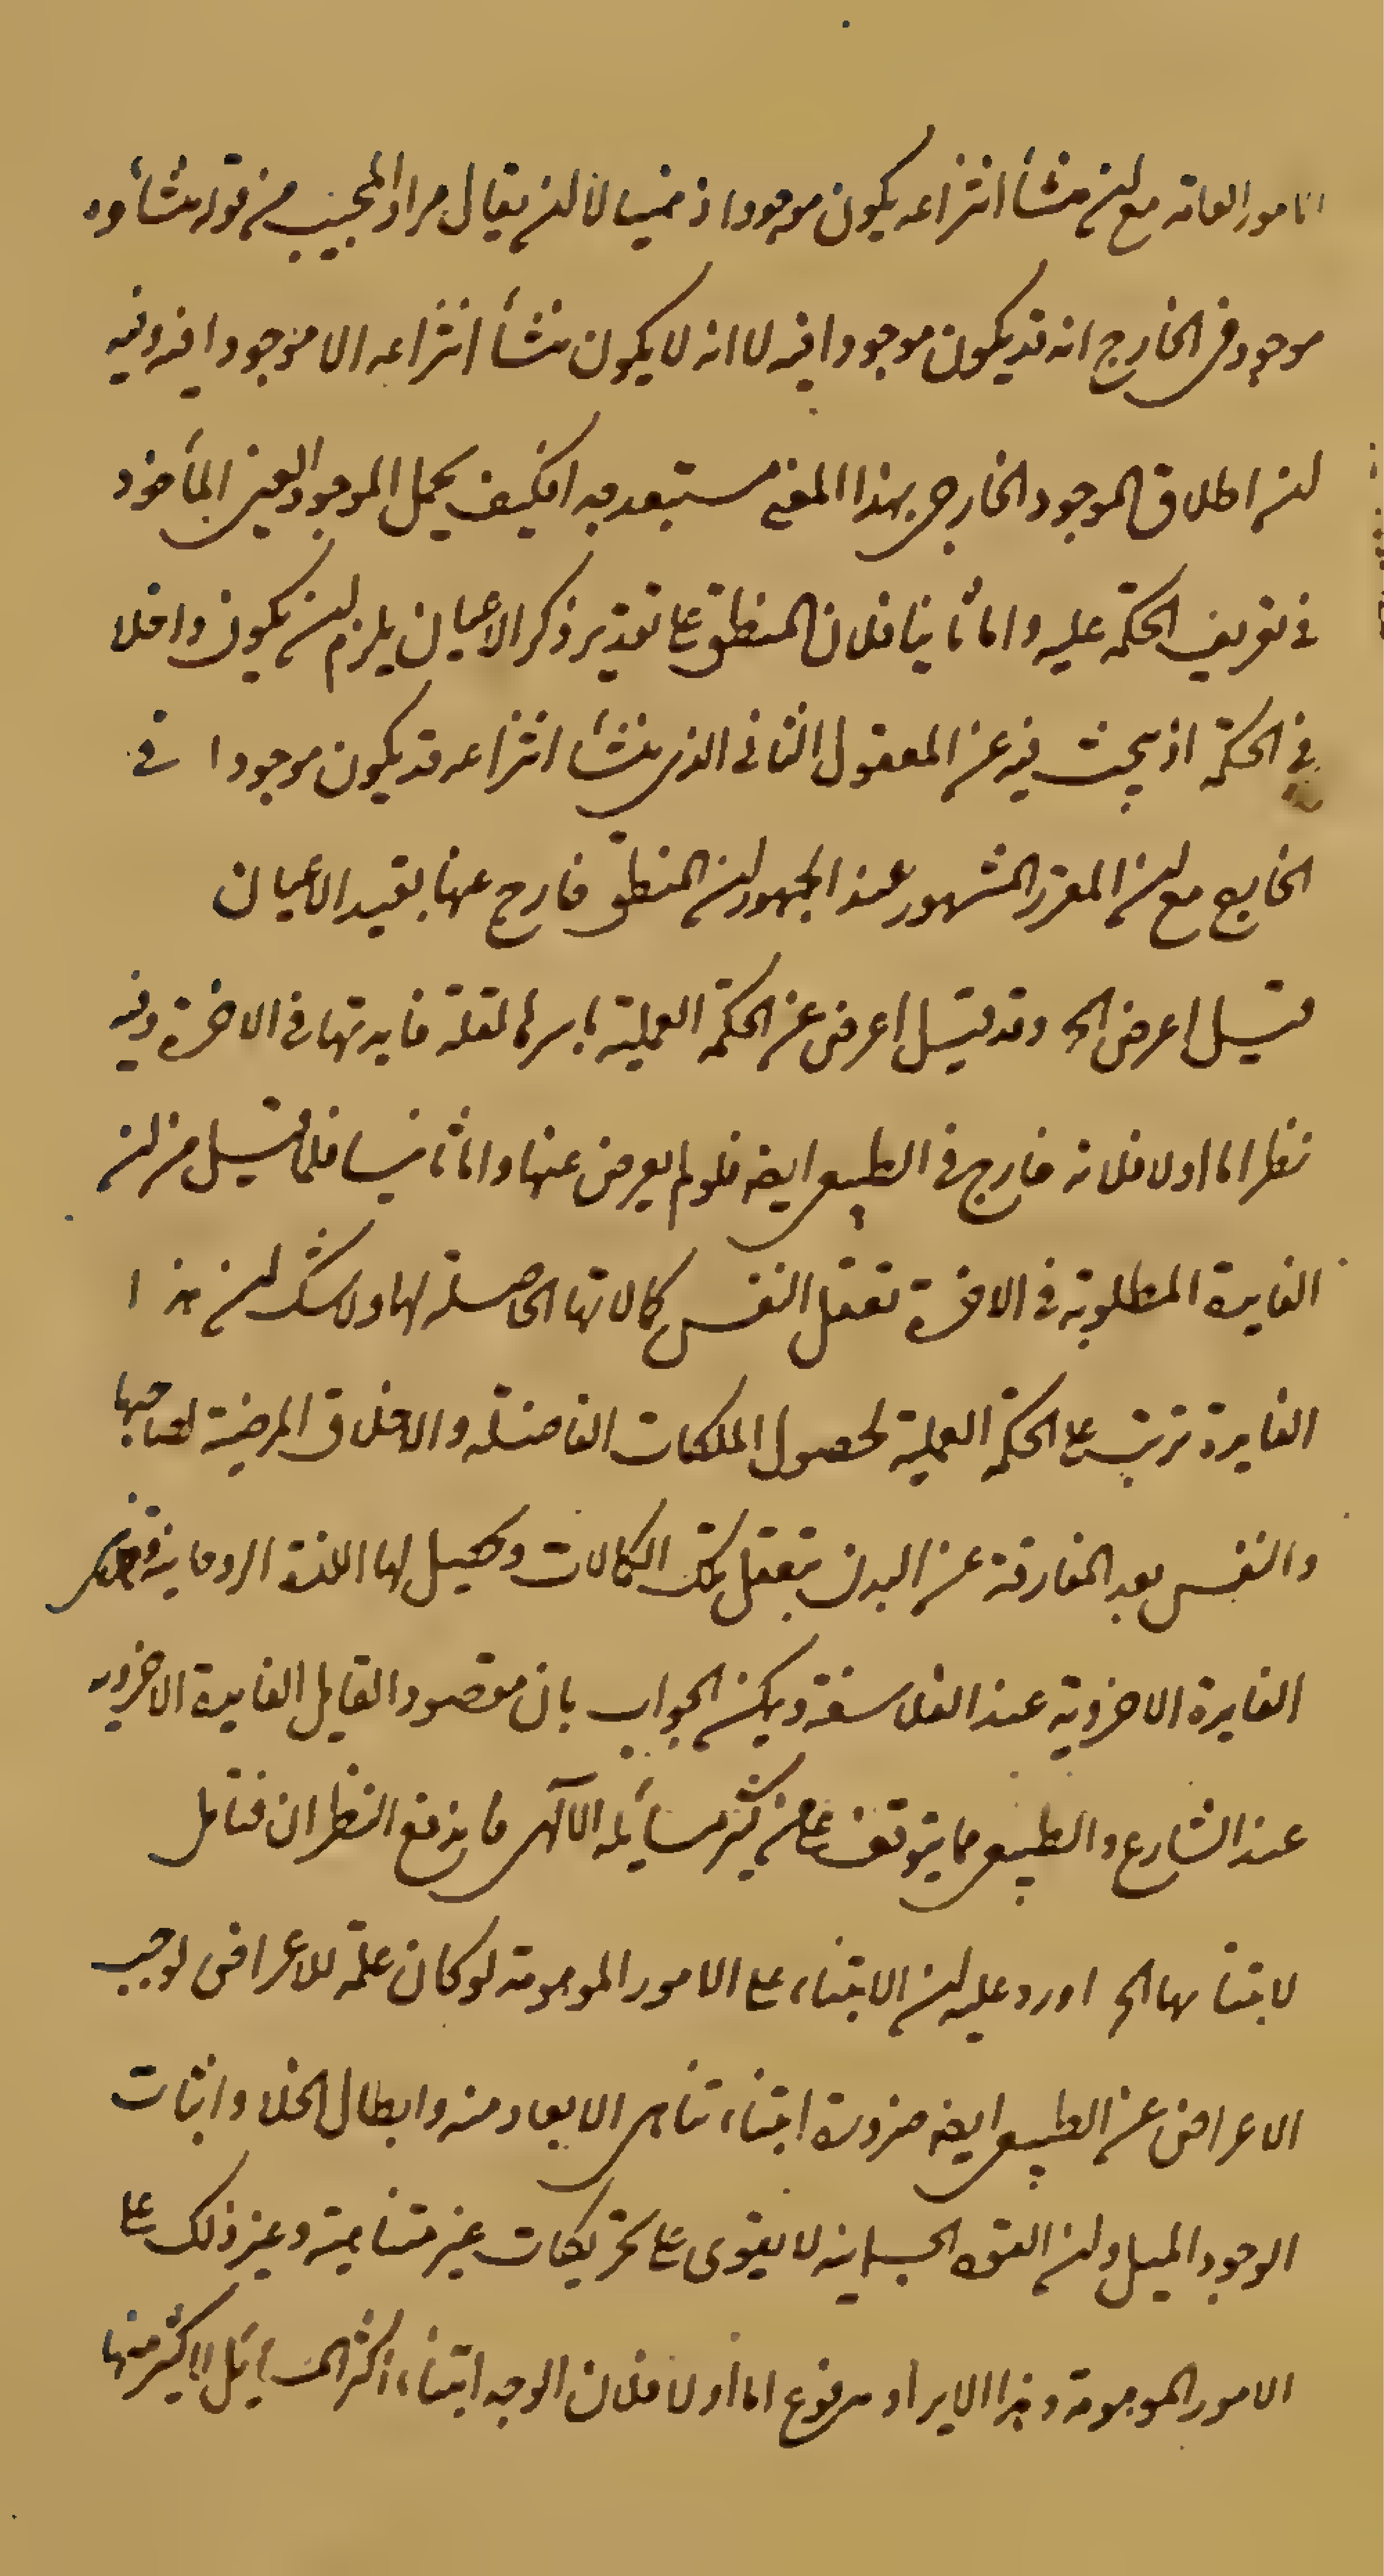 الامور العامة مع ان منشأ انتزاعه يكون موجودا ذهنيا الا ان يقال مراد المجيب من قوله منشأوه
موجود في الخارج انه قد يكون موجودا فيه لا انه لا يكون منشأ انتزاعه الا موجودا فيه وفيه
ان اطلاق الموجود الخارجي بهذا المعنى مستبعد جدا فكيف يحمل الموجود العيني المأخوذ
في تعريف الحكمة عليه واما ثانيا فلان المنطق على تقدير ذكر الاعيان يلزم ان يكون داخلا
في الحكمة اذ يبحث فيه عن المعقول الثاني الذي منشأ انتزاعه قد يكون موجودا في
الخارج مع ان المقرر المشهور عند الجمهور ان المنطق خارج عنها بقيد الاعيان
قيل اعرض الخ وقد قيل اعرض عن الحكمة العملية باسرها لقلة فايدتها في الاخرة وفيه
نظر اما اولا فلانه خارج في الطبيعي ايضه فلو لم يعرض عنها واما ثانيا فلما قيل من ان
الفايدة المطلوبة في الاخرة تعقل النفس كمالاتها الحاصلة لها ولا شك ان هذا
الفايدة ترتب على الحكمة العملية لحصول الملكات الفاضلة والاخلاق المرضية لصاحبها
والنفس بعد المفارقة عن البدن بتعقل تلك الكمالات وتحصيل لها اللذة الروحانية
الفايدة الاخروية عند الفلاسفة ويمكن الجواب بان مقصود القايل الفايدة الاخروية
عند الشارع والطبيعي مما يتوقف عليه كثير مسائله الالهي فاندفع النظران فتأمل
لابتنائها الخ اورد عليه ان الابتناء على الامور الموهومة لو كان علة للاعراض لوجب
الاعراض عن الطبيعي ايضه ضرورة ابتناء تناهي الابعاد منه وابطال الخلا واثبات
الوجود الميل وان القوة الجسمانية لا يقوى على تحريكات غير متناهية وغير ذلك على
الامور الموهومة وهذا الايراد مدفوع اما اولا فلان الوجه ابتناء اكثر المسائل لا كثير منها